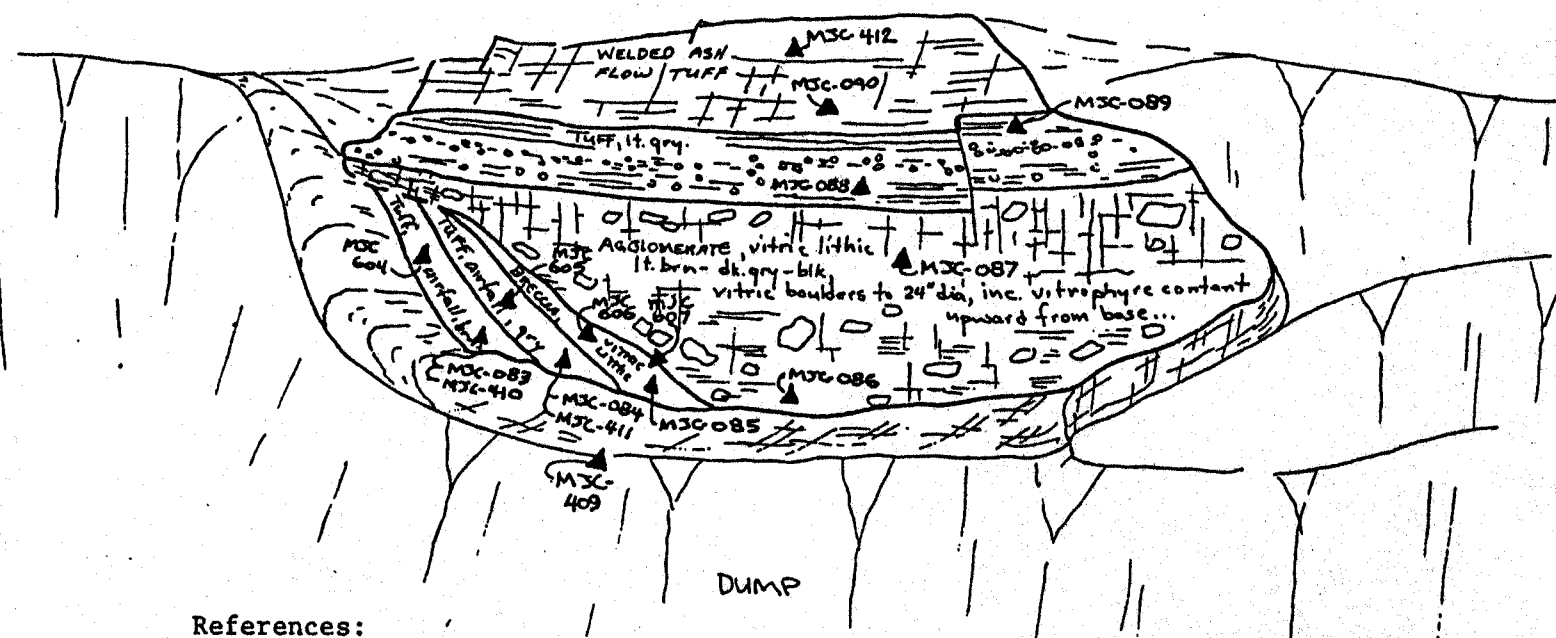 WELDED ASH
FLOW TUFF
MJC-412
MJC-090
MJC-089
TUFF, lt. gry.
MJC-088
AGGLOMERATE, vitric lithic
lt. brn - dk. gry - blk,
vitric boulders to 24" dia, inc. vitrophyre content
upward from base...
MJC-087
TUFF,
airfall, brn
TUFF, airfall, gry
BRECCIA,
vitric
lithic
MJC
604
MJC
605
MJC
606
MJC
607
MJC-086
MJC-083
MJC-410
MJC-084
MJC-411
MJC-085
MJC-
409
DUMP
References: